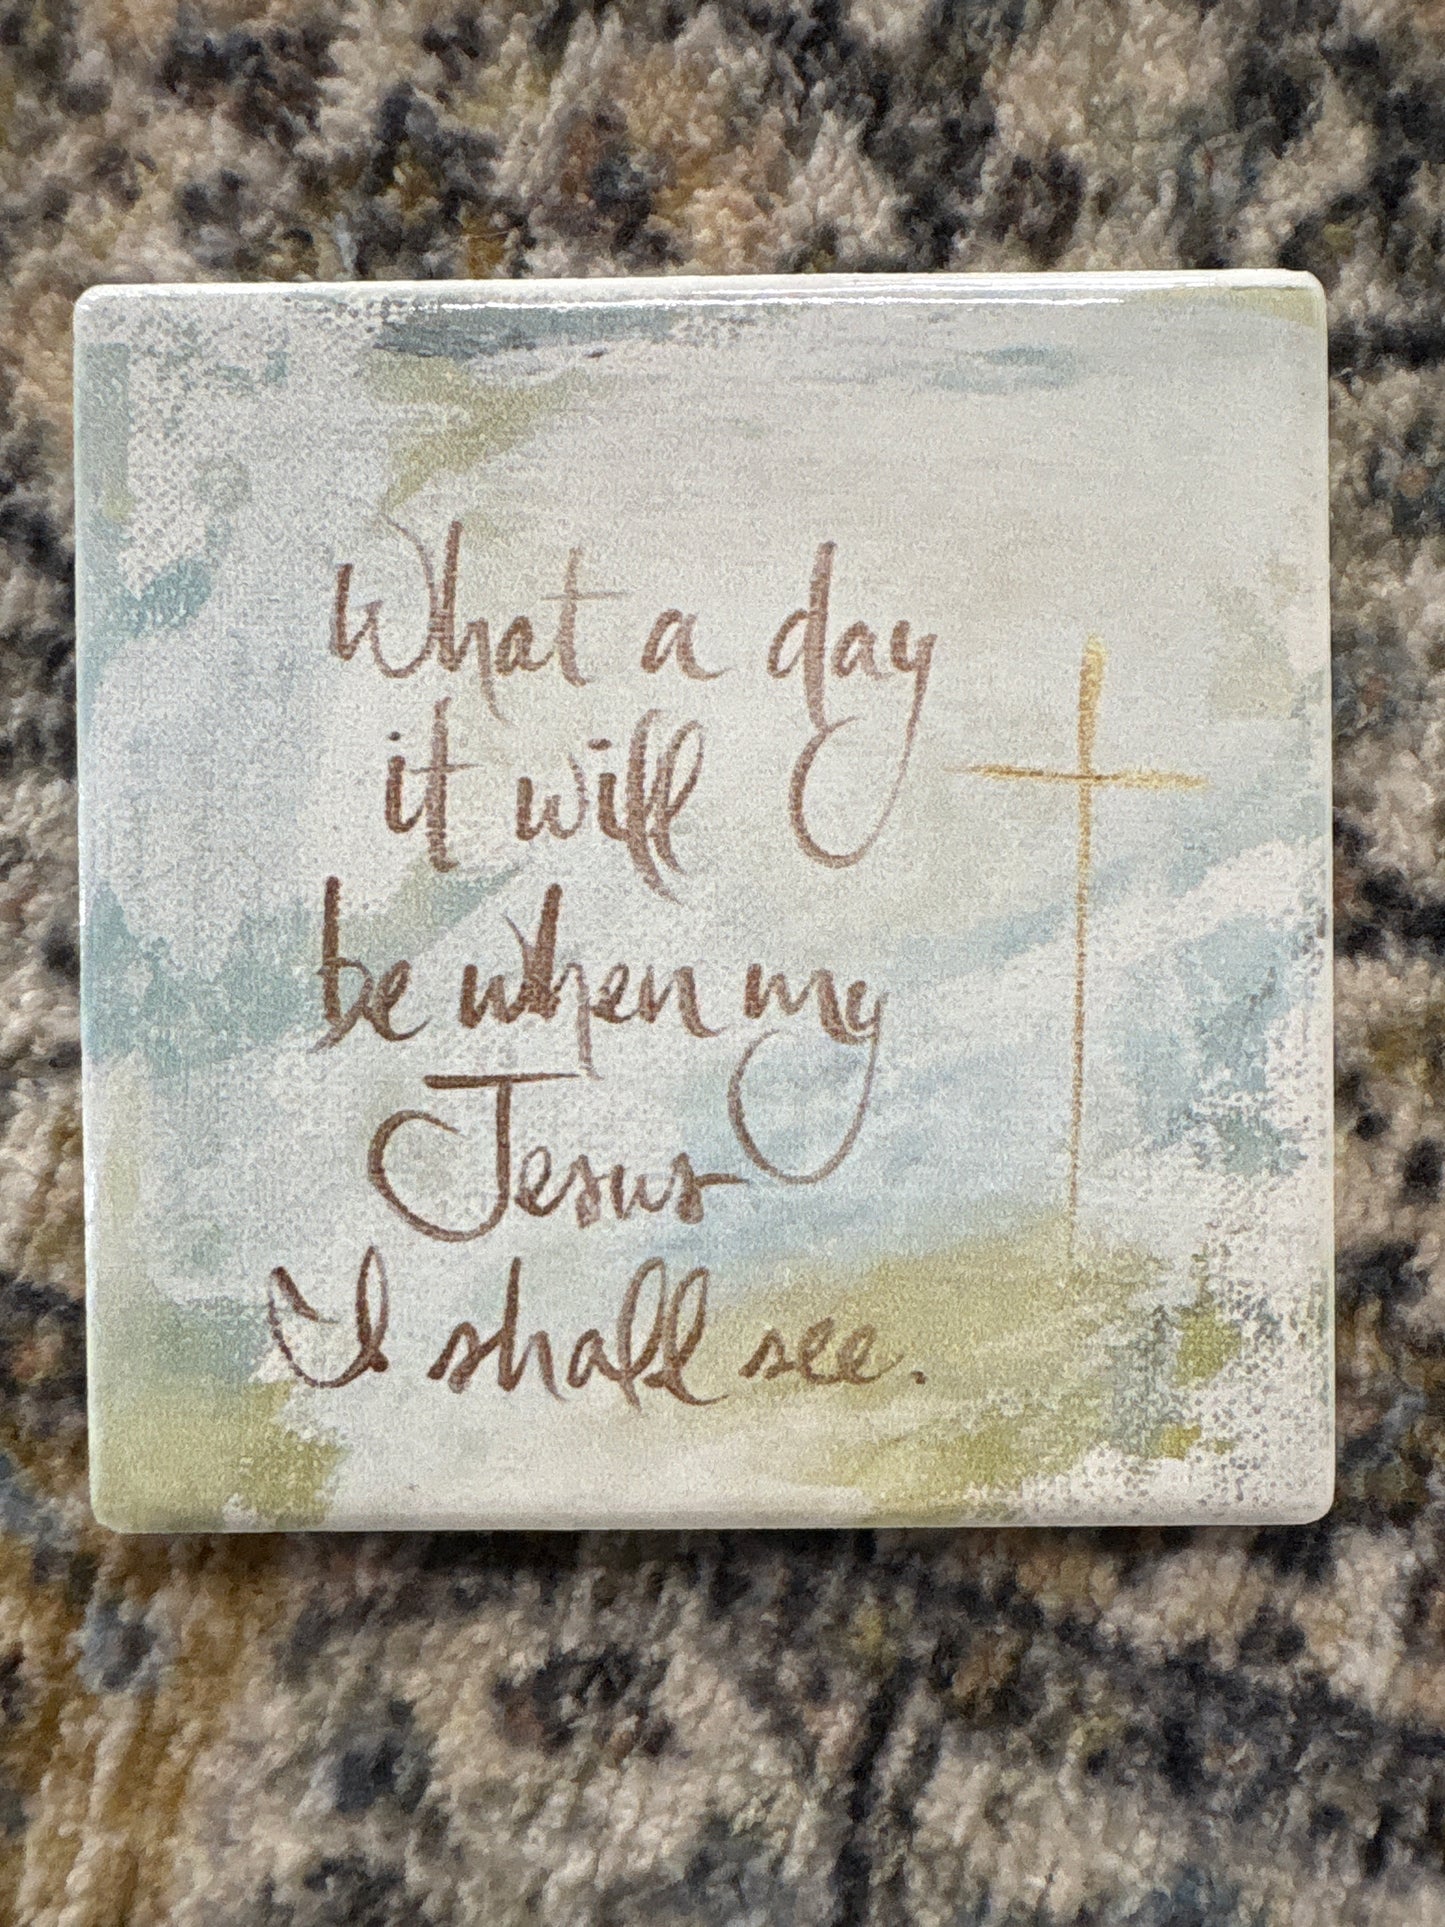 What a day
it will
be when my
Jesus
I shall see.